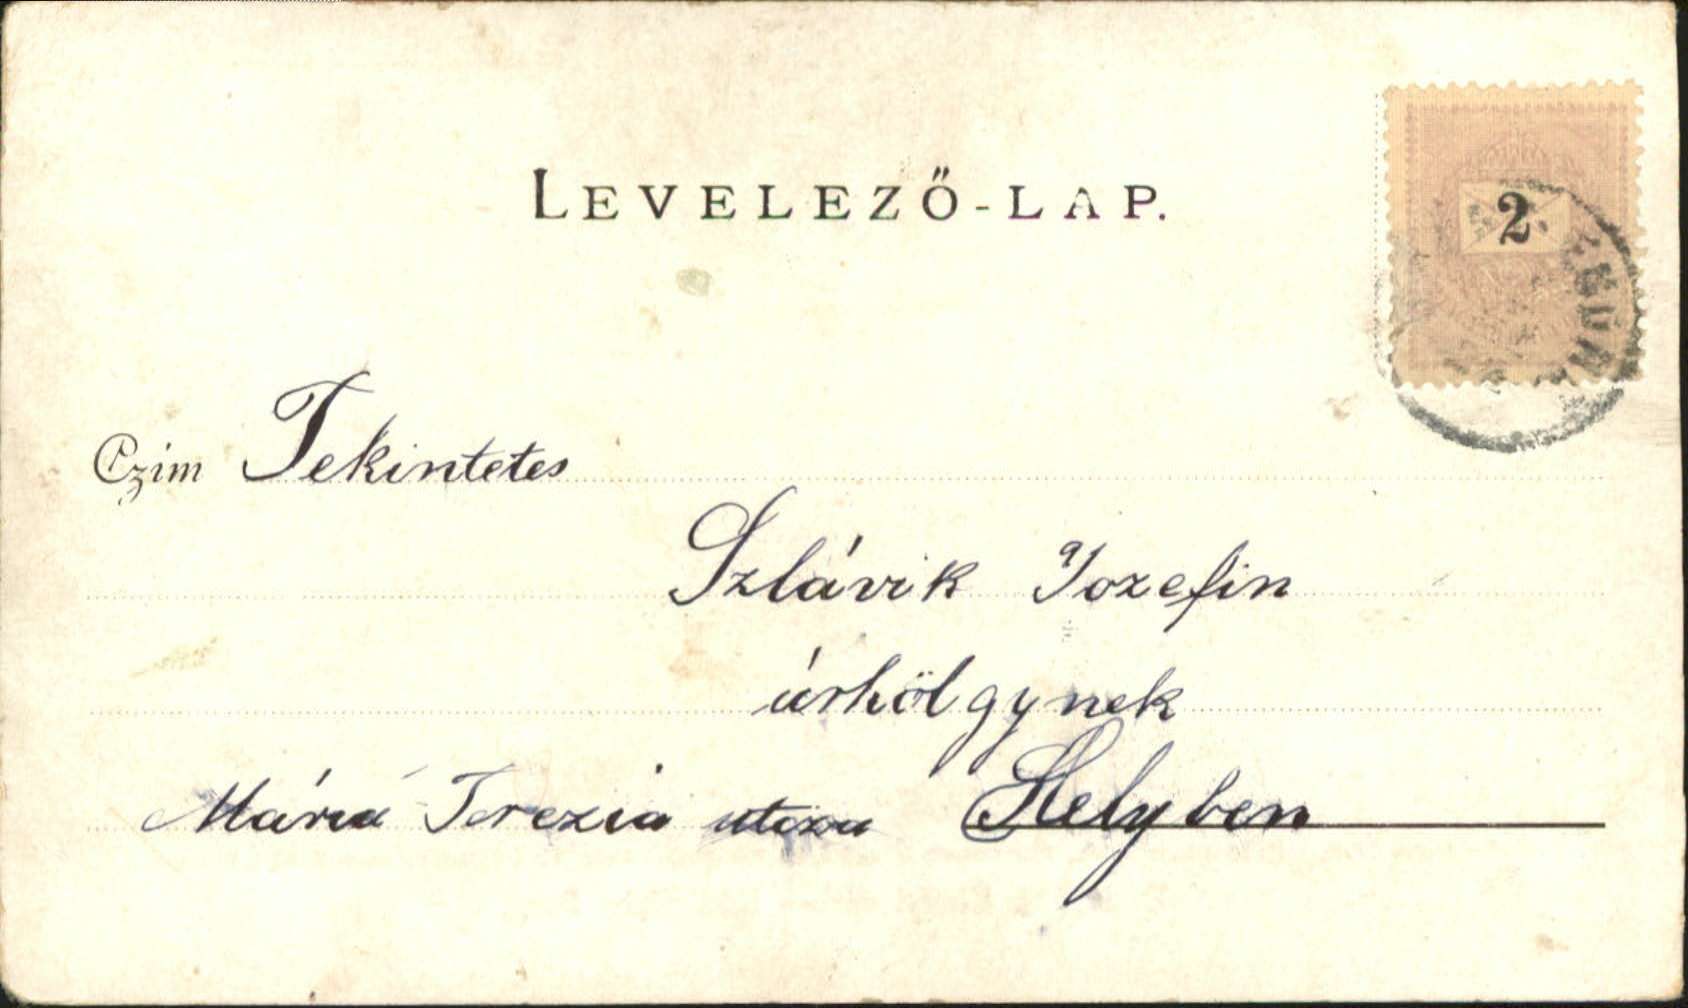 LEVELEZŐ-LAP.
2
Czim Tekintetes
Szlávik Jozefin
úrhölgynek
Mária Terezia utcza Helyben